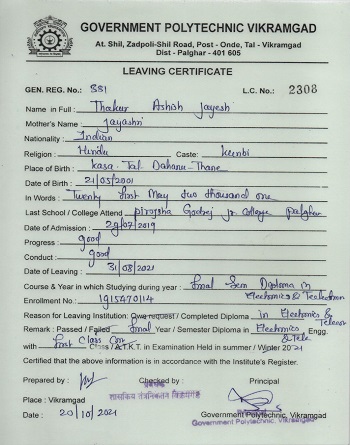 GOVERNMENT POLYTECHNIC VIKRAMGAD
At. Shil, Zadpoli-Shil Road, Post - Onde, Tal - Vikramgad
Dist - Palghar - 401 605
LEAVING CERTIFICATE
GEN. REG. No.: 881 L.C. No.: 2308
Name in Full : Thakur Ashish Jayesh
Mother's Name : Jayashri
Nationality : Indian
Religion : Hindu Caste: Kunbi
Place of Birth : Kasa-Tal-Dahanu-Thane
Date of Birth : 21/05/2001
In Words : Twenty first May two thousand one
Last School / College Attend pirojsha Godrej jr. college palghar
Date of Admission : 29/07/2019
Progress : good
Conduct : good
Date of Leaving : 31/08/2021
Course & Year in which Studying during year : final Sem Diploma in
Electronics &
Enrollment No. : 1915470114
Reason for Leaving Institution: Own request / Completed Diploma in Electronics &
Remark : Passed / Failed final Year / Semester Diploma in Electronics Engg.
& Tele
with first Class Class / A.T.K.T. in Examination Held in summer / Winter 2021
Certified that the above information is in accordance with the Institute's Register.
Prepared by : Checked by : Principal
Place : Vikramgad
शासकिय तंत्रनिकेतन विक्रमगड
Date : 20/10/2021 Government Polytechnic, Vikramgad
Government Polytechnic, Vikramgad